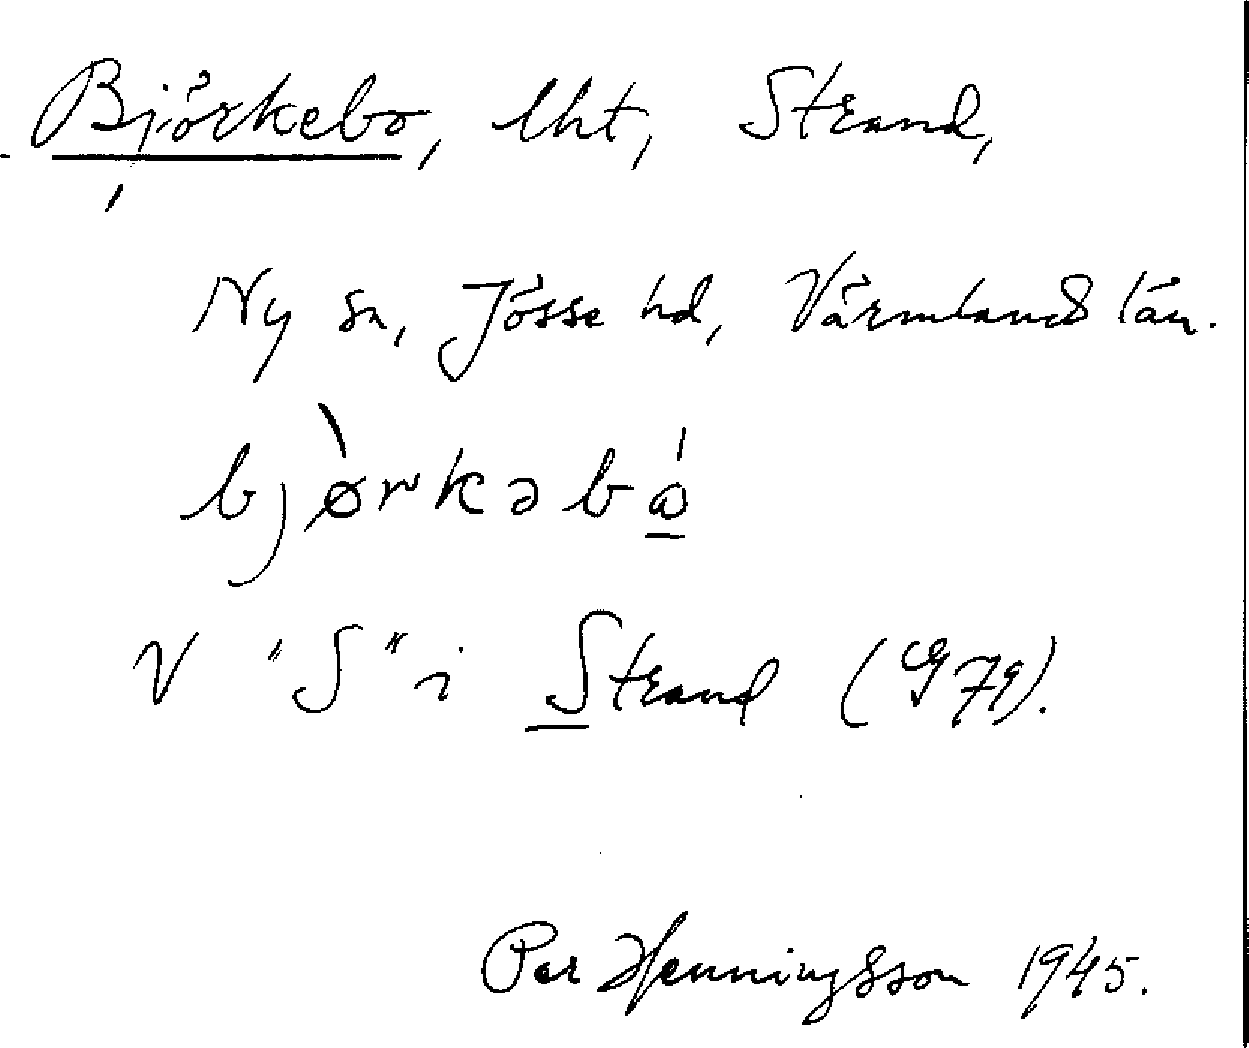 Björkebo, lht, Strand,
Ny sn, Jösse hd, Värmlands län.
bjørkəbó
V "S" i Strand (979).
Per Henningsson 1945.